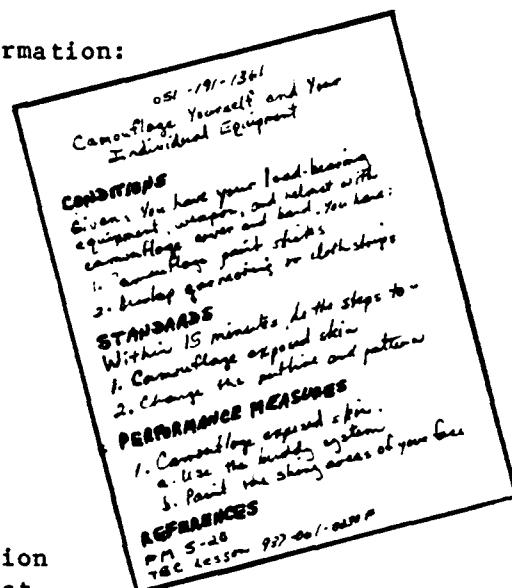 rmation:
051-191-1361
Camouflage Yourself and Your
Individual Equipment
CONDITIONS
Given: You have your load-bearing
equipment, weapon, and helmet with
camouflage cover and band. You have:
1. Camouflage paint sticks
2. Burlap garnishing or cloth strips
STANDARDS
Within 15 minutes, do the steps to-
1. Camouflage exposed skin
2. Change the outline and pattern
PERFORMANCE MEASURES
1. Camouflage exposed skin.
a. Use the buddy system
b. Paint the shiny areas of your face
REFERENCES
FM 5-20
TEC Lesson
tion